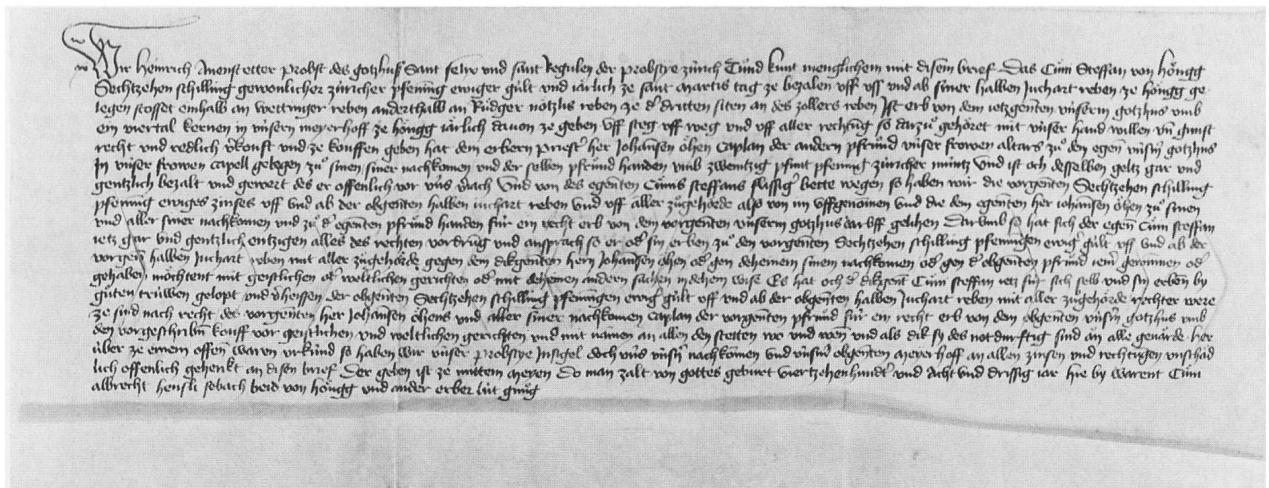 Wir Heinrich Anenstetter probst des gotzhus Sant felix und sant Regulen der probstye zürich Tünd kunt menglichem mit disem brief Das Cüni Steffan von höngg
Sechtzehen schilling gewonlicher züricher pfening ewiger gült und iärlich ze sant martis tag ze bezalen uff uss und ab siner halben Juchart reben ze höngg ge
legen stosset einhalb an wettinger reben anderthalb an Rüdger nötzlis reben ze d dritten siten an des zollers reben Ist erb von dem ietzgenten ünserm gotzhus umb
ein viertal kernen in ünsern meyerhoff ze höngg iärlich davon ze geben uff steg uff weg und uff aller rechtung so darzuo gehöret mit ünser hand willen und gunst
recht und redlich verkouft und ze kouffen geben hat dem erbern priester her Johansen öhen Caplan der andern pfruond ünser frowen altars zu den egen ünserm gotzhus
In ünser frowen capell gelegen zuo sinen siner nachkomen und der selben pfruond handen umb zwentzig pfunt pfenning züricher müntz und ist och desselben geltz gar und
gentzlich bezalt und gewert des er offenlich vor üns verjach Und von des egenten Cünis steffans flissiger bette wegen so haben wir die vorgenten Sechtzehen schilling
pfenning ewiges zinses uff und ab der obgenten halben iuchart reben und uff aller zuogehörde also von im uffgenomen und die dem egenten her iohansen öhen zuo sinen
und aller siner nachkomen und zuo d egenten pfruond handen für ein recht erb von dem vorgenten ünserm gotzhus darüff gelihen Darumb so hat sich der egen Cüni steffan
ietz gar und gentzlich entzigen alles des rechten vordrung und ansprach so er oder sin erben zuo den vorgenten Sechtzehen schilling pfenningen ewig gült uff und ab der
vorgen halben Juchart reben mit aller zuogehörde gegen dem dikgenten hern Johansen öhen oder gen deheinem sinem nachkomen oder gen d obgenten pfruond iemer gewunnen oder
gehaben möchtent mit geistlichen oder weltlichen gerichten oder mit deheinen andern sachen in dehein wise Es hat och d dikgent Cüni steffan ietz für sich selb und sin erben by
guoten trüwen gelopt und verheissen der obgenten Sechtzehen schilling pfenningen ewig gült uff und ab der obgenten halben Juchart reben mit aller zuogehörde rechter were
ze sind nach recht des vorgenten her Johansen öhens und aller siner nachkomen caplan der vorgenten pfruond für ein recht erb von dem obgenten ünserm gotzhus umb
den vorgeschribnen kouff vor geistlichen und weltlichen gerichten und mit namen an allen den stetten wo und wenn und als dik sy des notdurftig sind an alle geverde her
über ze einem offen waren urkünd so haben wir ünser probstye Insigel doch üns ünsern nachkomen und ünserm obgenten meyerhoff an allen zinsen und rechtungen unschäd
lich offenlich gehenkt an disen brief Der geben ist ze mittem meyen Do man zalt von gottes geburt viertzehenhundert und Acht und drissig iar hie by warent Cüni
albrecht hensli sebach beid von höngg und ander erber lüt gnuog